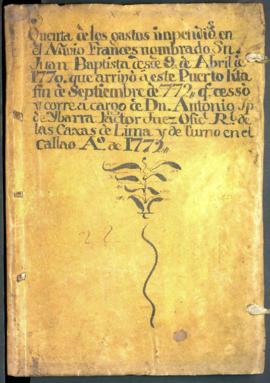 Quenta de los gastos inpendidos en
el Navio Frances nombrado Sn.
Juan Baptista desde 9. de Abril de
1770. que arrivò à este Puerto hta.
fin de Septiembre de 772,, q. cesso
y corre à cargo de Dn. Antonio Jph
de Ybarra Factor Juez Ofic. Rl. de
las Caxas de Lima y de turno en el
Callao. Ao. de 1772,,